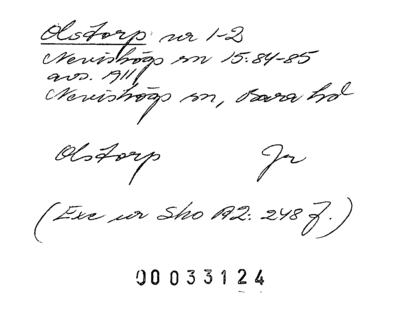 Olstorp nr 1-2
Nevishögs sn 15:84-85
avs. 1911
Nevishögs sn, Bara hd
Olstorp Jr
(Exc ur Sho A2: 248 f.)
00033124